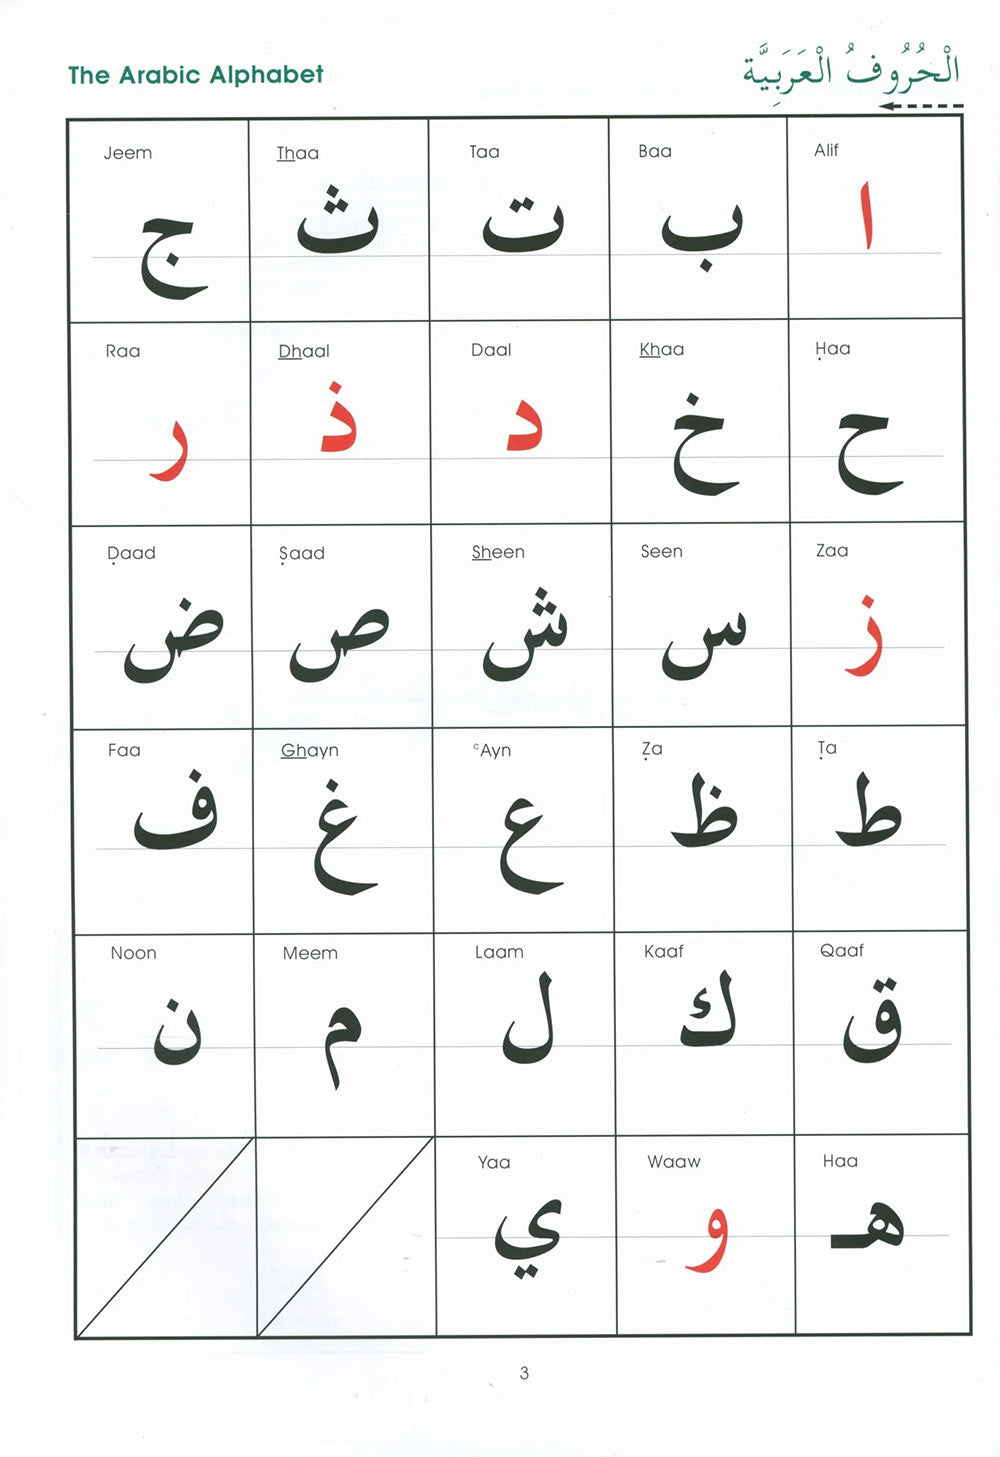 The Arabic Alphabet
الْحُرُوفُ الْعَرَبِيَّة
Alif Baa Taa Thaa Jeem
ا ب ت ث ج
Ḥaa Khaa Daal Dhaal Raa
ح خ د ذ ر
Zaa Seen Sheen Ṣaad Ḍaad
ز س ش ص ض
Ṭa Ẓa ᶜAyn Ghayn Faa
ط ظ ع غ ف
Qaaf Kaaf Laam Meem Noon
ق ك ل م ن
Haa Waaw Yaa
هـ و ي
3